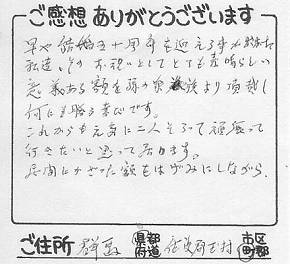 ご感想ありがとうございます
早や結婚五十周年を迎える事が出来た
私達、その お祝いとしてとても素晴らしい
意義ある額を孫の 家族より頂戴し
何にも勝る喜びです。
これからも元気に二人そろって頑張って
行きたいと思って居ります。
居間にかざった額をはげみにしながら。
ご住所 群馬 都道府県 佐波郡玉村 市区町郡